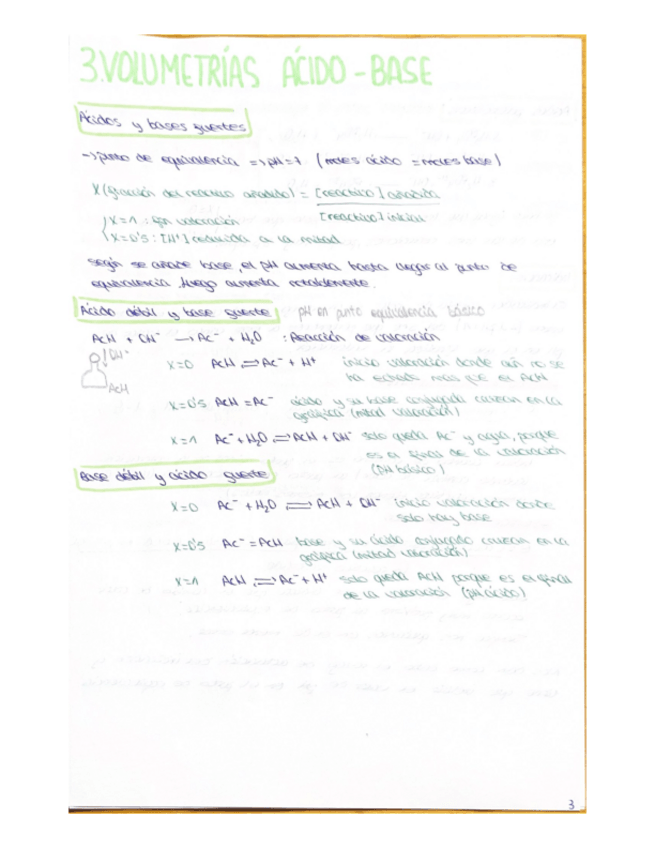 3.VOLUMETRÍAS ÁCIDO-BASE
Ácidos y bases fuertes
→ punto de equivalencia => pH=7 (moles ácido = moles base)
X (fracción del reactivo añadido) = [reactivo] añadido
[reactivo] inicial
X=1 : fin valoración
X=0'5 : [H⁺] reducida a la mitad
según se añade base, el pH aumenta hasta llegar al punto de
equivalencia, luego aumenta notablemente.
Ácido débil y base fuerte pH en punto equivalencia básico
AcH + OH⁻ → Ac⁻ + H₂O : Reacción de valoración
OH⁻
AcH
X=0 AcH ⇌ Ac⁻ + H⁺ inicio valoración donde aún no se
ha echado más que el AcH
X=0'5 AcH = Ac⁻ ácido y su base conjugada cruzan en la
gráfica (mitad valoración)
X=1 Ac⁻ + H₂O ⇌ AcH + OH⁻ solo queda Ac⁻ y agua, porque
es el final de la valoración
(pH básico)
Base débil y ácido fuerte
X=0 Ac⁻ + H₂O ⇌ AcH + OH⁻ inicio valoración donde
solo hay base
X=0'5 Ac⁻ = AcH base y su ácido conjugado cruzan en la
gráfica (mitad valoración)
X=1 AcH ⇌ Ac⁻ + H⁺ solo queda AcH porque es el final
de la valoración (pH ácido)
3